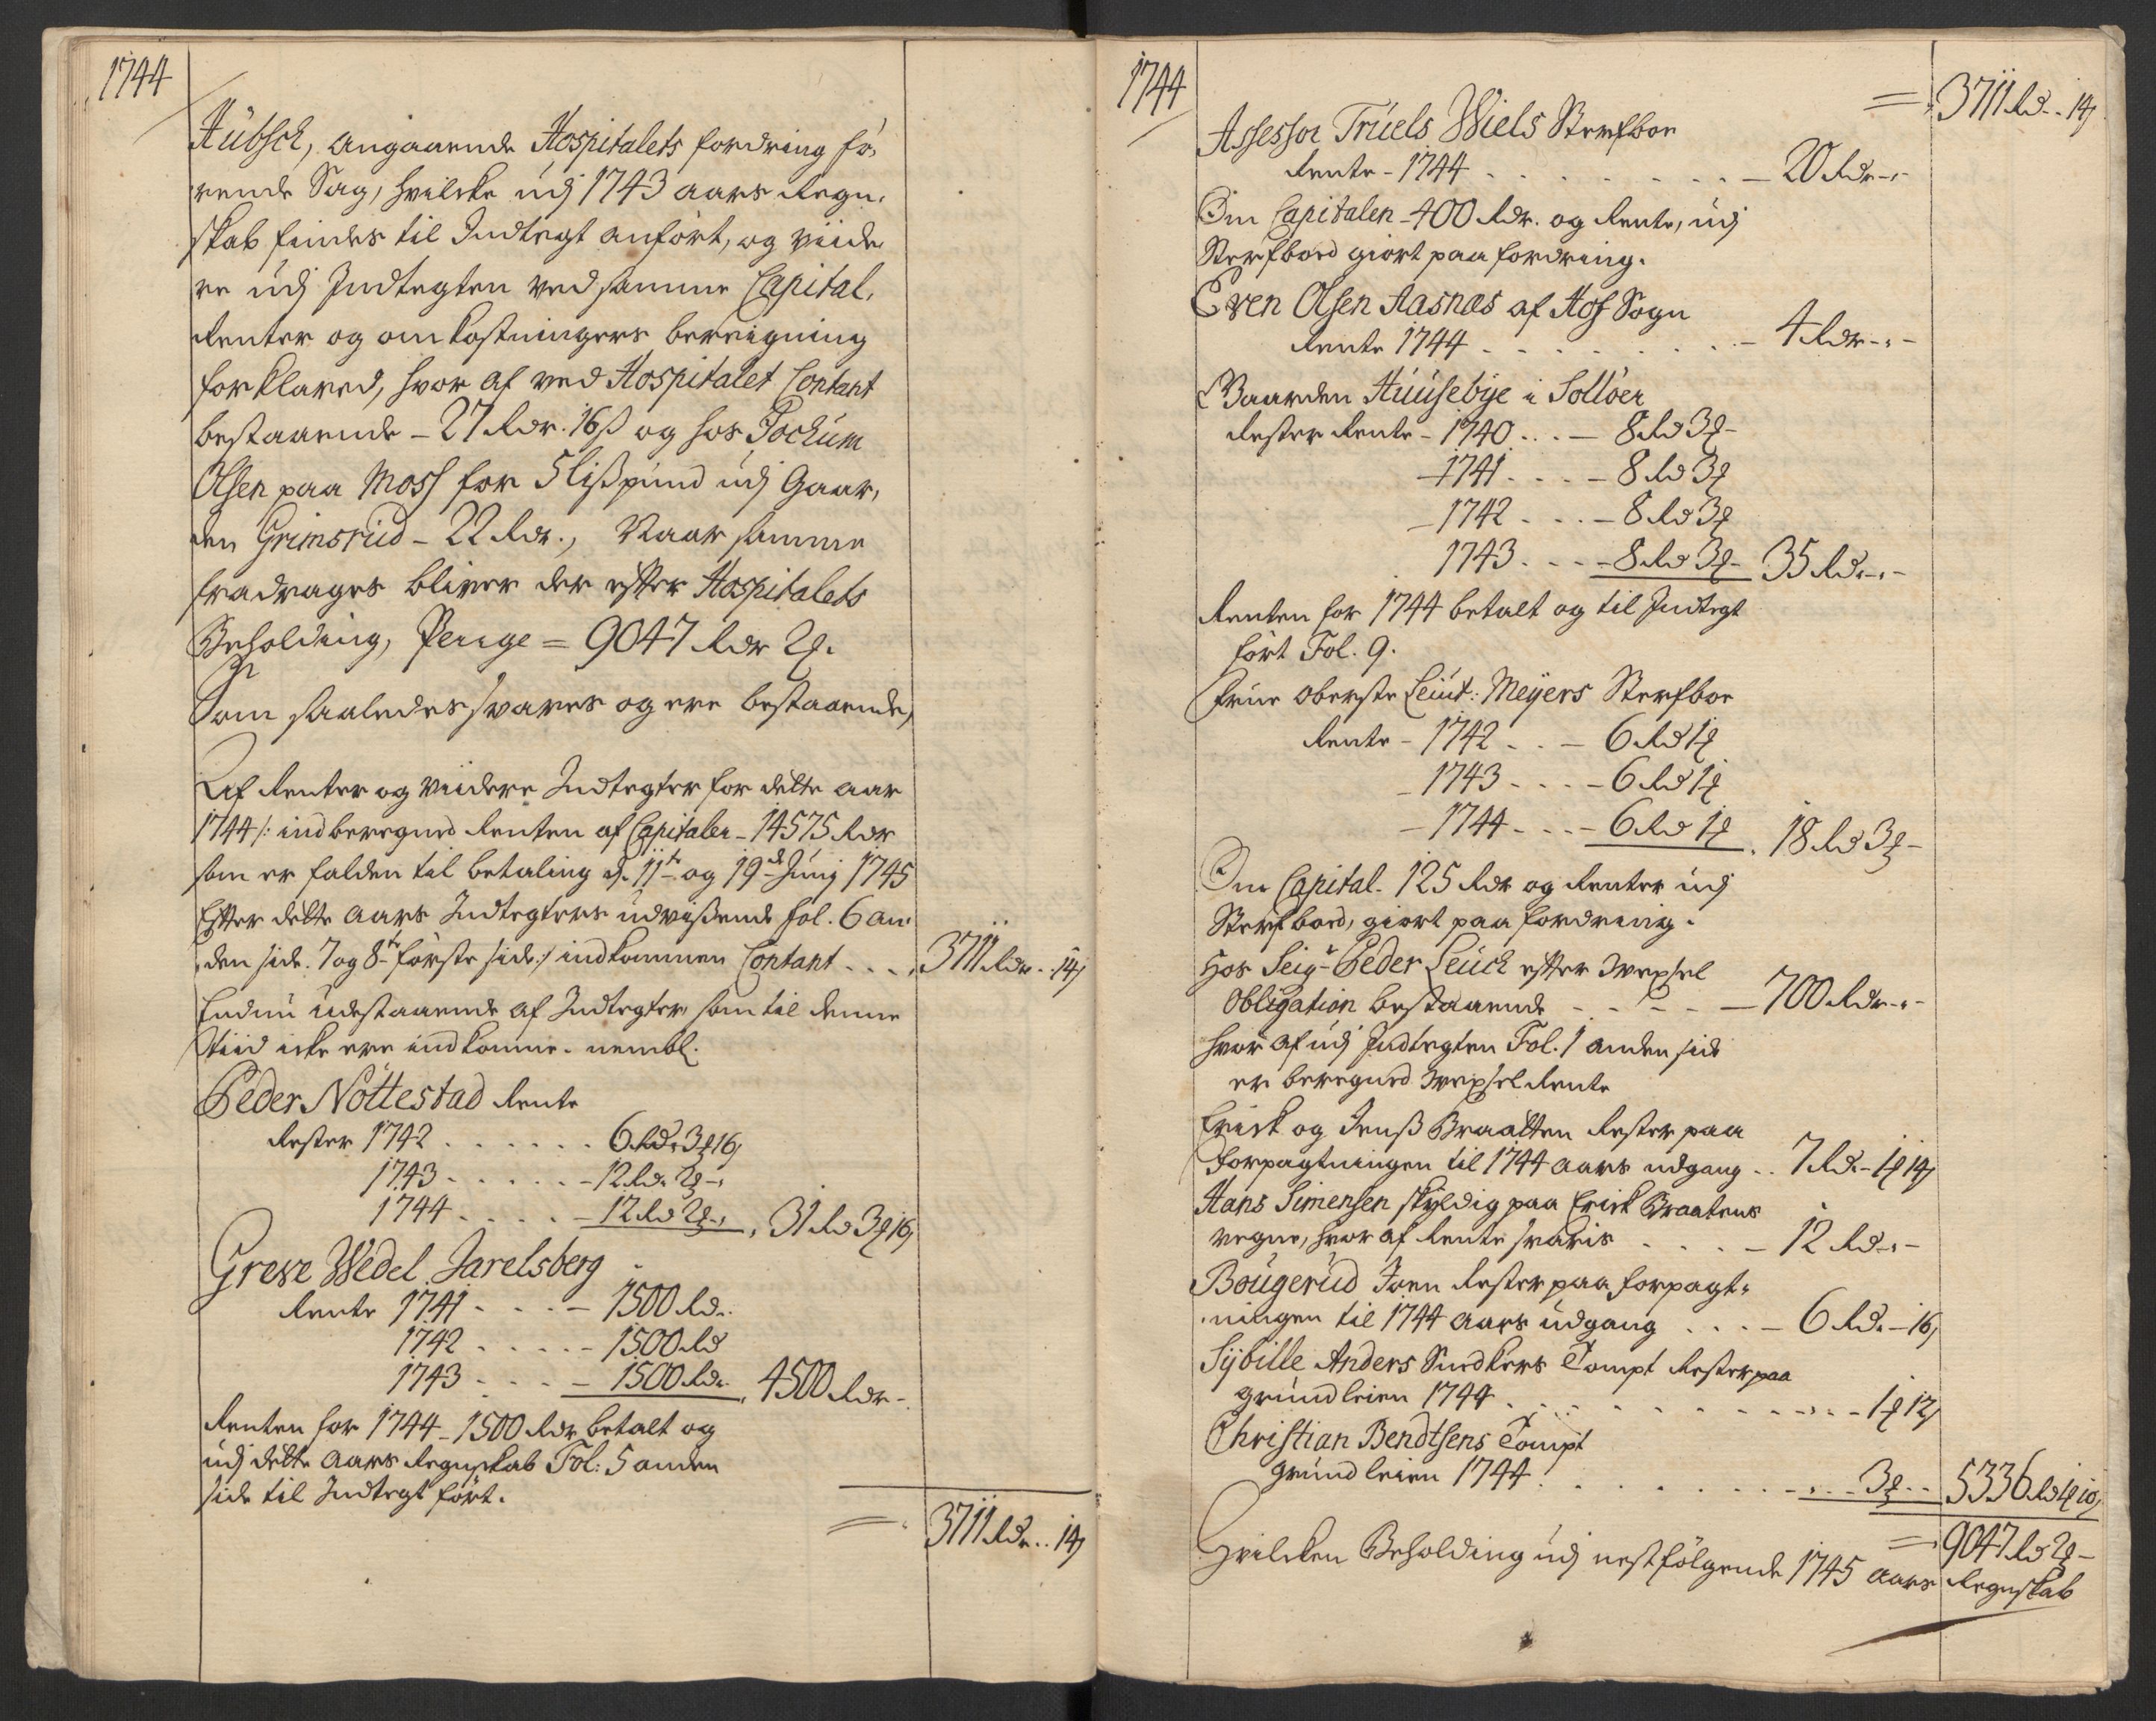 1744
Hübsch, angaaende Hospitalets fordring fö-
rende Sag, hvilcke udj 1743 aars Regn-
skab findes til Indtegt anfört, og viide-
re udj Indtegten ved samme Capital,
Renter og omkostningers bereigning
forklared, hvor af ved Hospitalet Contant
bestaaende - 27 Rdr. 16 ß og hos Jochum
Olsen paa Moss for 5 lißpund udj Gaar-
den Grimsrud - 22 Rdr., Naar samme
fradrages bliver der efter Hospitalets
Beholding, Penge = 9047 Rdr 2 ꝗ.
Som saaledes svares og ere bestaaende,
Af Renter og viidere Indtegter for dette aar
1744 /: indberegned Renten af Capitalen - 14575 Rdr
som er falden til betaling d. 11te og 19de Junij 1745
Efter dette aars Indtegters udvißende fol. 6 an-
den side. 7 og 8te förste side :/ indkommen Contant . . . 3711 Rdr . . 14 ß
Endnu udestaaende af Indtegter som til denne
tiid icke ere indkomne. nembl.
Peder Nöttestad Rente
Rester 1742 . . . . . . 6 Rd. 3 ꝗ 16 ß
1743 . . . . . - 12 Rd. 2 ꝗ -
1744 . . . . - 12 Rd 2 ꝗ - , 31 Rd 3 ꝗ 16 ß
Greve Wedel Jarelsberg
Rente 1741 . . . - 1500 Rd.
1742 . . . . . - 1500 Rd
1743 . . . . - 1500 Rdr. 4500 Rdr -
Renten for 1744 - 1500 Rdr betalt og
udj dette aars Regnskab Fol: 5 anden
side til Indtegt fört.
= 3711 Rdr . . 14 ß
1744
= 3711 Rd . . 14 ß
Assessor Truels Wiels Sterfboe
Rente - 1744 . . . . . . . . - 20 Rdr - -
Om Capitalen - 400 Rdr. og Rente, udj
Sterfboed giort paa fordring.
Even Olsen Aasnæs af Hof Sogn
Rente 1744 . . . . . . . . - 4 Rdr - -
Gaarden Huusebye i Sollöer
Rester Rente - 1740 . . . - 8 Rd 3 ꝗ -
- 1741 . . . . - 8 Rd 3 ꝗ
- 1742 . . . - 8 Rd 3 ꝗ
1743 . . . - 8 Rd 3 ꝗ - 35 Rd - -
Renten for 1744 betalt og til Indtegt
fört Fol. 9.
Frue Oberste Leiut: Meÿers Sterfboe
Rente - 1742 . . - 6 Rd 1 ꝗ
- 1743 . . . - 6 Rd 1 ꝗ
- 1744 . . . - 6 Rd 1 ꝗ . 18 Rd 3 ꝗ -
Om Capital. 125 Rdr og Renter udj
Sterfboed, giort paa fordring.
Hos Seigr Peder Leuch efter Vexsel
Obligation bestaaende - - - - - 700 Rdr - -
hvor af udj Indtegten Fol. 1 anden side
er beregned Vexsel Rente
Erick og Jenß Braatten Rester paa
Forpagtningen til 1744 aars udgang . . 7 Rd. - 1 ꝗ 14 ß
Hans Simensen skyldig paa Erick Braatens
vegne, hvor af Rente svaris . . . . - 12 Rd - -
Bougerud Joen Rester paa forpagt-
ningen til 1744 aars udgang . . . - 6 Rd. - 16 ß
Sÿbille Anders Snedkers Tompt Rester paa
grundleien 1744 . . . . . . . . . . - 1 ꝗ 12 ß
Christian Bendtsens Tompt
grundleien 1744 . . . . . . . . . . 3 ꝗ . . 5336 Rd 1 ꝗ 10 ß
= 9047 Rd 2 ꝗ -
Hvilcken Beholding udj nestfölgende 1745 aars Regnskab